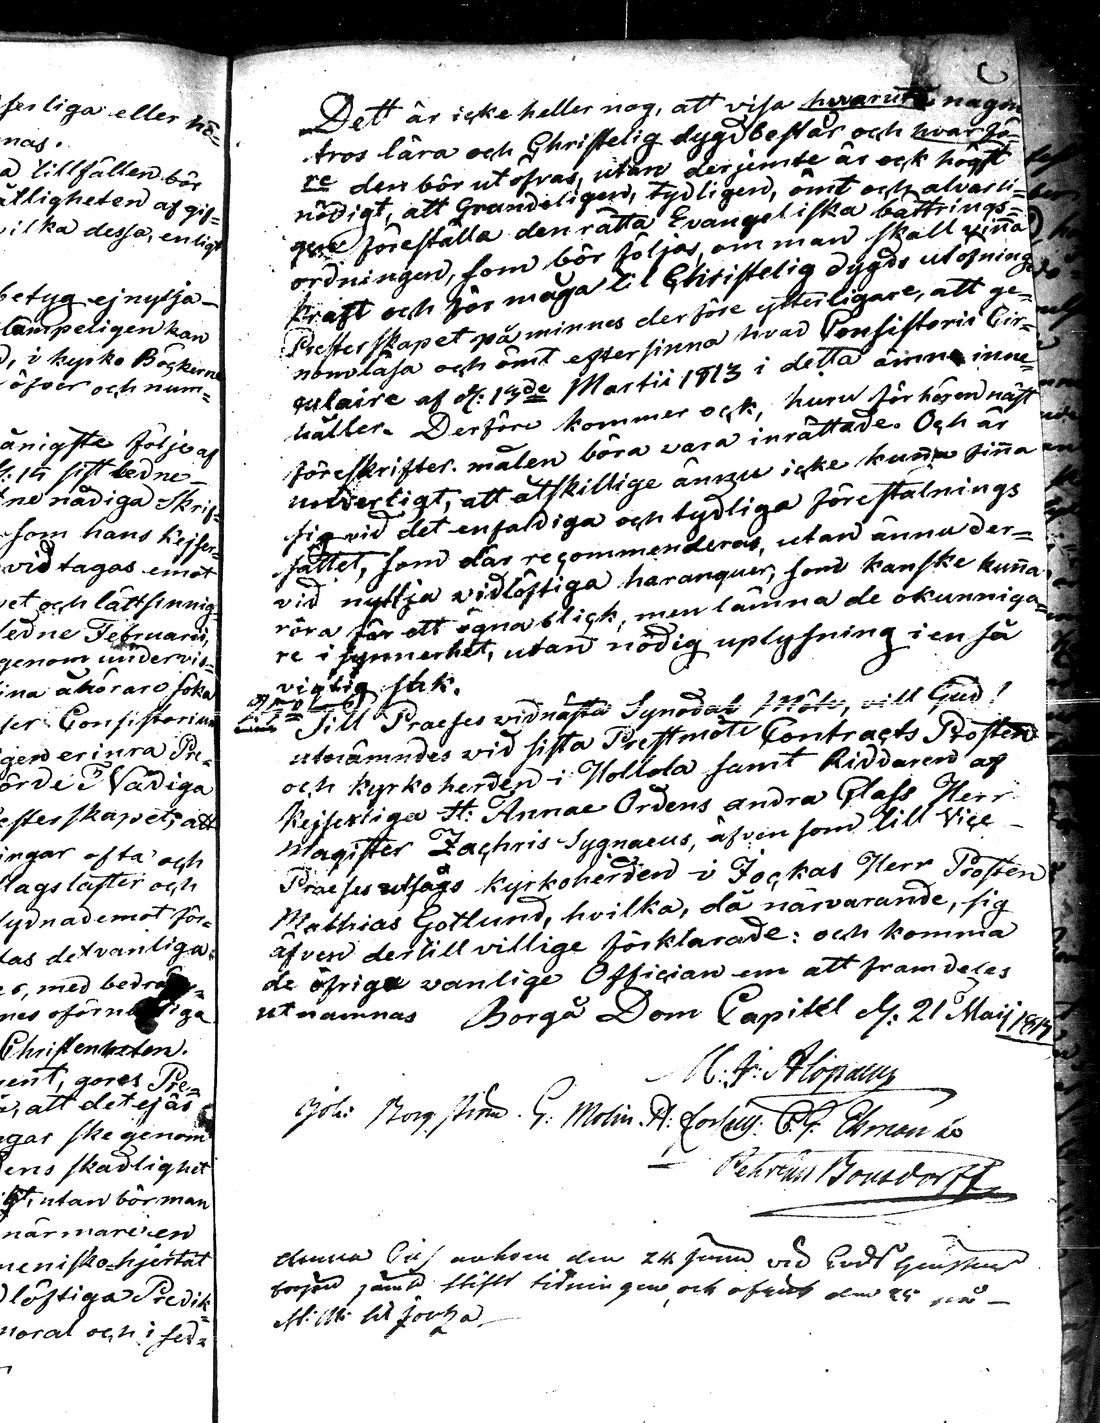 serliga eller nå=
nas.
a tillfällen bör
ätligheten af gif=
ilka dessa, enligt
betyg ej nytja
Lämpeligen kan
d, i kyrko Böckerne
öfver och num=
änigste följe af
15 sistledne
ne nådiga Skrif=
som hans Kejser=
vid tagas emot
et och lättsinnig
ledne Februarii,
genom undervis=
ina åhörare söka
ser Consistorium
gen erinra Pre=
örde I Nådiga
esterskapet, att
ingar ofta och
lagslaster och
lydnad emot för=
las det vanliga
es, med bedröf=
Christenheten.
ent, göres Pre=
a, att det ej äs
gar ske genom
dens skadlighet
st, utan bör man
närmare en
menisko=hjertat
löftiga Predik=
moral och i sed=
Dett är icke heller nog, att visa hvarut nagon
tros lära och Christelig dygd består och hvarfö=
re den bör utöfvas, utan derjemte är ock högst
nödigt, att Grundeligen, tydligen, ömt och alvarli=
gen föreställa den rätta Evangeliska bättrings=
ordningen, som bör följas, om man skall vinna
kraft och förmåga til Christelig dygds utöfning
Presterskapet påminnes derföre ytterligare, att ge=
nomläsa och ömt eftersinna hvad Consistorii Cir=
culaire af d: 13de Martii 1813 i detta ämne inne=
håller. Derföre kommer ock, huru förhören näst
föreskrifter. målen böra vara inrättade. Och är
underligt, att åtskillige ännu icke kunna finna
sig vid det enfaldiga och tydliga föreställnings
sättet, som där recommenderas, utan ännu der=
vid nyttja vidlöftiga haranquer, som kanske kunna
röra för ett ögnablick, men lämna de okunniga=
re i synnerhet, utan nödig uplysning i en så
vigtig sak.
Till Praeses vid nästa Synodal Möte, vill Gud!
utnämndes vid sista Prestmöte Contracts Prosten
och kyrkoherden i Hollola samt Riddaren af
Kejserliga St: Annae Ordens andra Class Herr
Magister Zachris Cygnaeus, äfven som till Vice
Praeses utsågs kyrkoherden i Jockas Herr Prosten
Mathias Gotlund, hvilka, då närvarande, sig
äfven dertill villige förklarade: och komma
de öfriga vanlige Officianem att framdeles
utnämnas Borgå Dom Capitel d: 21 Maij
M: J: Alopaeus
Joh: Borgström. G: Molin.
Petrus Bonsdorff
den 24 Junii vid
och den 25